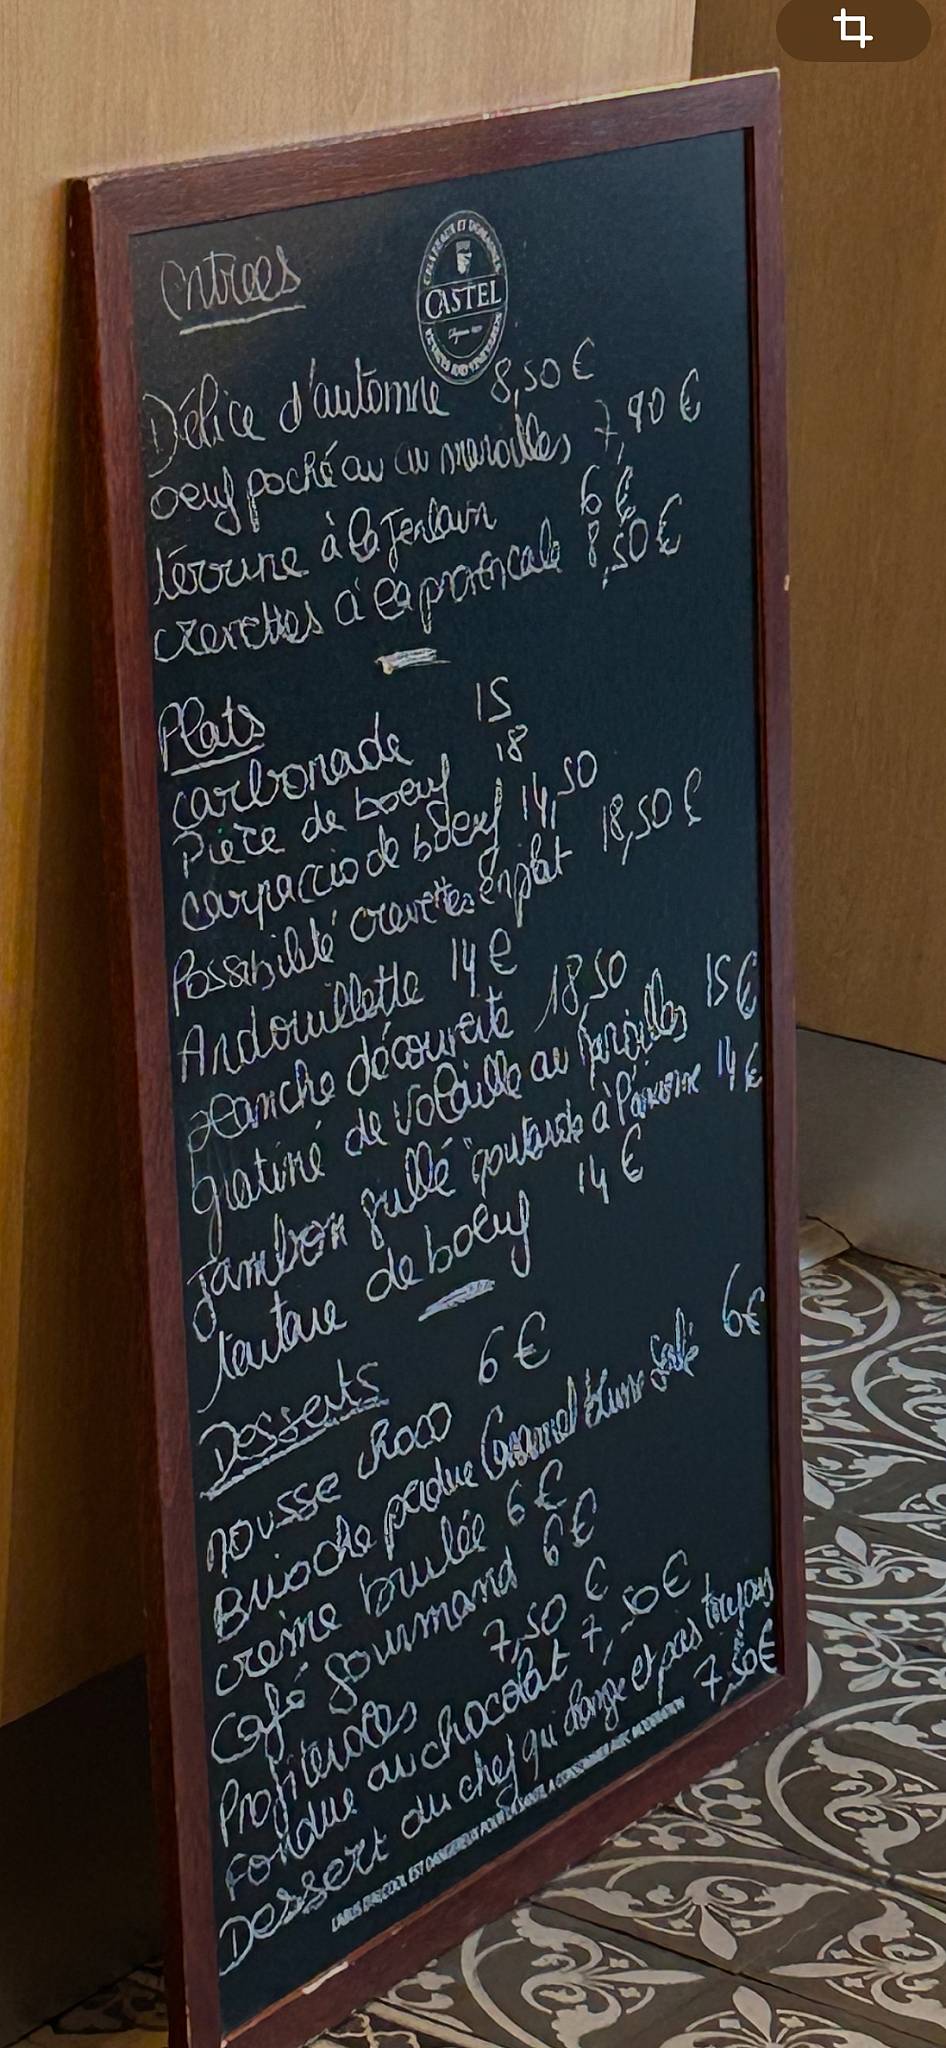 entrées
CHATEAUX ET DOMAINES
CASTEL
Délice d'automne 8,50 €
oeuf poché au maroilles 7,90 €
terrine à la Jenlain 6 €
crevettes à la provencale 8,50 €
Plats
carbonade 15
Pièce de boeuf 18
carpaccio de boeuf 14,50
Possibilité crevettes en plat 18,50 €
Andouillette 14 €
planche découverte 18,50
gratiné de volaille au maroilles 15 €
jambon grillé moutarde à l'ancienne 14 €
tartare de boeuf 14 €
Desserts
mousse choco 6 €
Brioche perdue Caramel beurre salé 6€
crème brulée 6 €
Café Gourmand 6 €
Profiteroles 7,50 €
Fondue au chocolat 7,50 €
Dessert du chef qui change et pas toujours 7,50€
L'ABUS D'ALCOOL EST DANGEREUX POUR LA SANTÉ, A CONSOMMER AVEC MODERATION